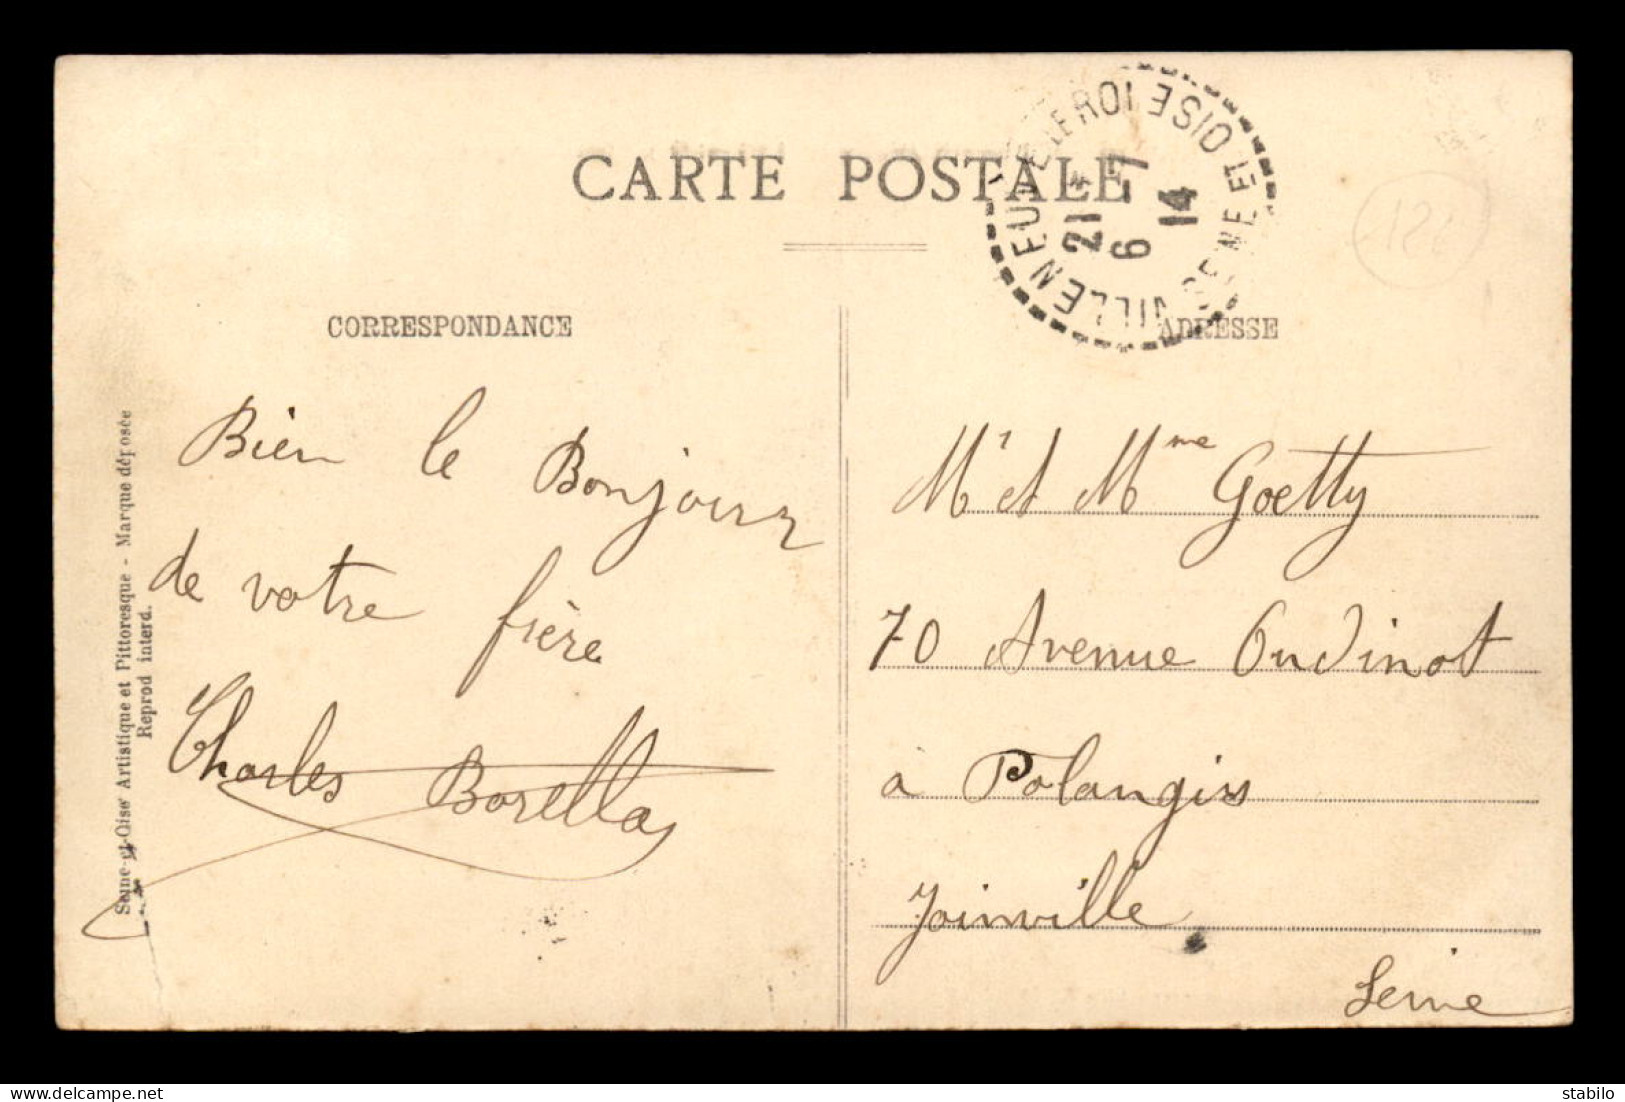 CARTE POSTALE
VILLENEUVE LE ROI
SEINE ET OISE
21 *
6 - 7
14
CORRESPONDANCE
ADRESSE
Bien le Bonjour
de votre frère
Charles Borella
Mr et Mme Goetty
70 Avenue Oudinot
a Polangis
Joinville
Seine
Seine-et-Oise Artistique et Pittoresque - Marque déposée
Reprod interd.
delcampe.net
stabilo